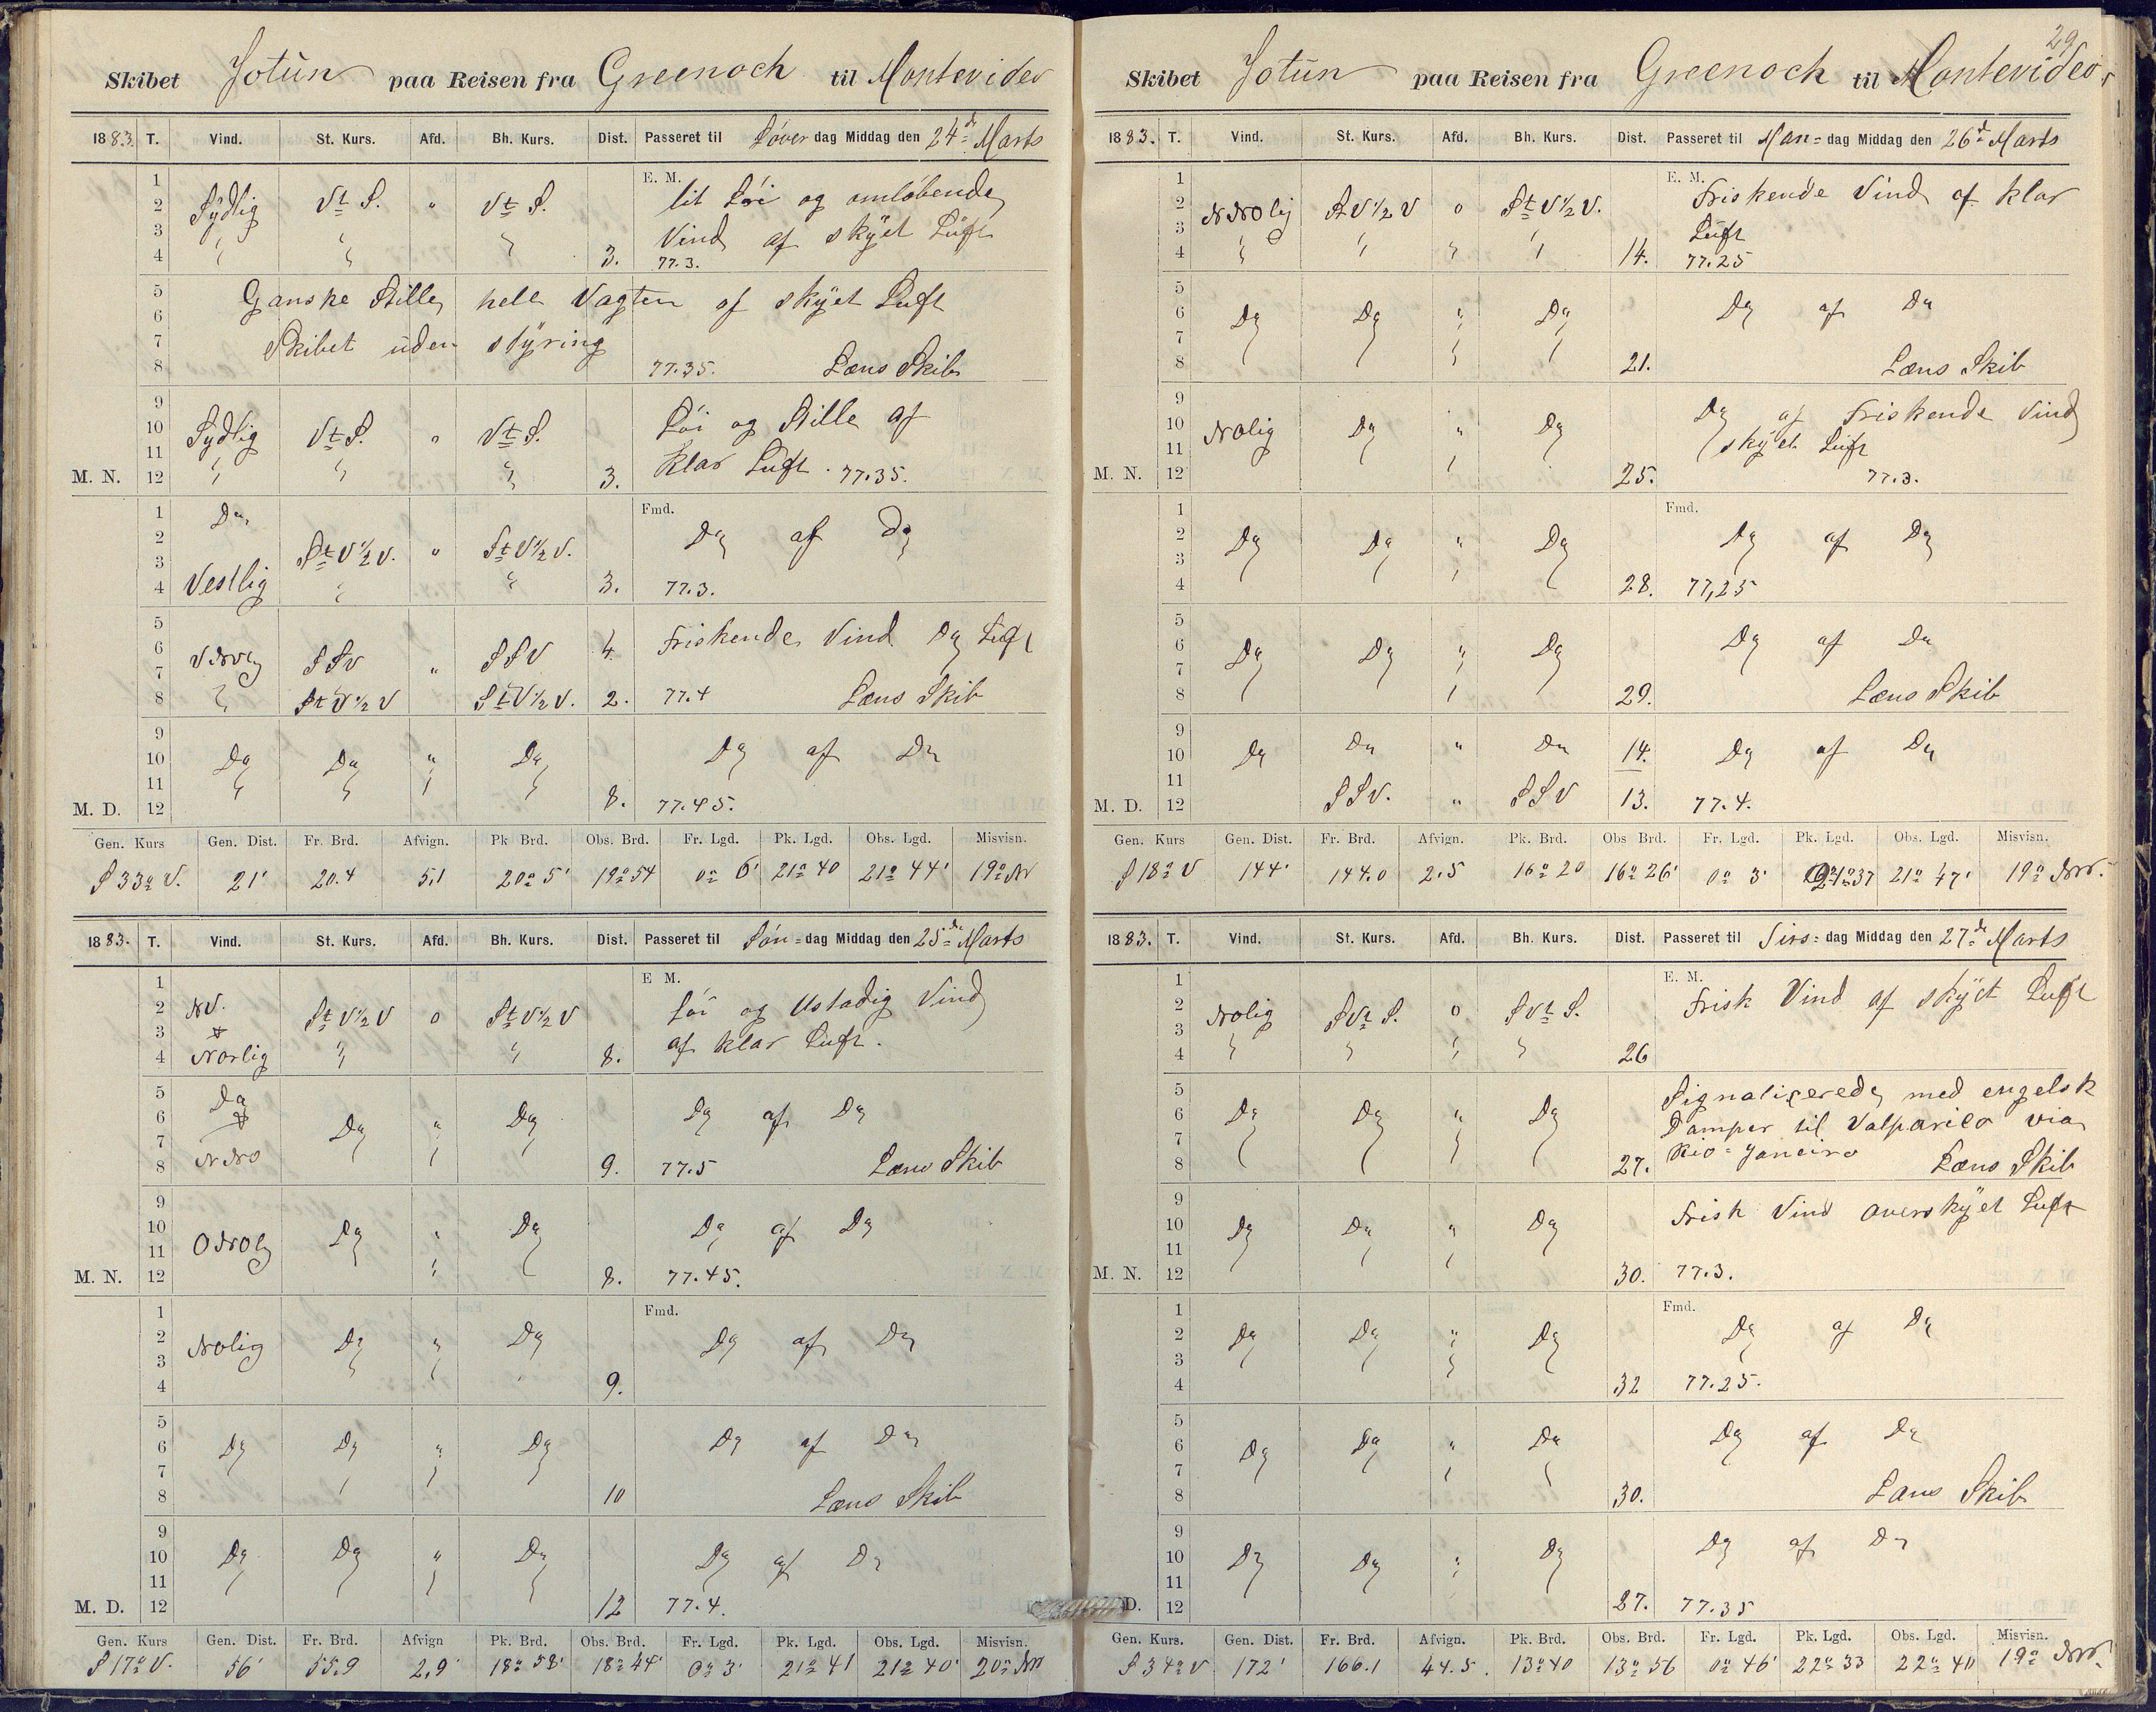 Skibet Jotun paa Reisen fra Greenock til Montevideo
1883. T. Vind. St. Kurs. Afd. Bh. Kurs. Dist. Passeret til Löverdag Middag den 24de Marts
E. M.
1
2 Sÿdlig Vt S. " Vt S. lit Löi og omlöbende
3 Vind af skÿet Luft
4 " " " 3. 77.3.
5 Ganske Stille hele Vagten af skÿet Luft
6
7 Skibet uden stÿring
8 77.35. Læns Skib
9
10 Sÿdlig Vt S. " Vt S. Löi og Stille af
11 klar Luft. 77.35.
M. N. 12 " " " 3.
Fmd.
1 Do
2 St V 1/2 V. " St V 1/2 V. Do af Do
3
4 Vestlig " " 3. 77.3.
5
6 VNVlg SSV " SSV 4 Friskende Vind Do Luft
7
8 " St V 1/2 V St V 1/2 V. 2. 77.4 Læns Skib
9
10 Do Do " Do Do af Do
11
M. D. 12 8. 77.45.
Gen. Kurs Gen. Dist. Fr. Brd. Afvign. Pk Brd. Obs. Brd. Fr. Lgd. Pk. Lgd. Obs. Lgd. Misvisn.
S 33o V. 21' 20.4 5,1 20o 5' 19o 54 0o 6' 21o 40 21o 44' 19o NV
1883. T. Vind. St. Kurs. Afd. Bh. Kurs. Dist. Passeret til Sön=dag Middag den 25de Marts
E M.
1
2 NV. St V 1/2 V o St V 1/2 V Löi og Ustadig Vind
3 af klar Luft.
4 Norlig " " 8.
5 Do
6 Do " Do Do af Do
7
8 NNO 9. 77.5 Læns Skib
9
10 ONOlg Do " Do Do af Do
11
M. N. 12 8. 77.45.
Fmd.
1
2 NOlig Do " Do Do af Do
3
4 9.
5
6 Do Do " Do Do af Do
7
8 10 Læns Skib
9
10 Do Do " Do Do af Do
11
M. D. 12 12 77.4.
Gen. Kurs Gen. Dist. Fr. Brd. Afvign Pk. Brd. Obs. Brd. Fr. Lgd. Pk. Lgd. Obs. Lgd. Misvisn.
S 17o V. 56' 55.9 2,9' 18o 58' 18o 44' 0o 3' 21o 41 21o 40' 20o NV
29
Skibet Jotun paa Reisen fra Greenock til Montevideo
1883. T. Vind. St. Kurs. Afd. Bh. Kurs. Dist. Passeret til Man=dag Middag den 26de Marts
E. M.
1
2 NNOlig St V 1/2 V o St V 1/2 V. Friskende Vind af klar
3 Luft
4 " " " " 14. 77.25
5
6 Do Do " Do Do af Do
7
8 21. Læns Skib
9
10 NOlig Do " Do Do af Friskende Vind
11 skÿet Luft
M. N. 12 25. 77.3.
Fmd.
1
2 Do Do " Do Do af Do
3
4 28. 77,25
5
6 Do Do " Do Do af Do
7
8 29. Læns Skib
9
10 Do Do " Do 14. Do af Do
11
M. D. 12 SSV. " SSV 13. 77.4.
Gen. Kurs Gen. Dist. Fr. Brd. Afvign. Pk. Brd. Obs Brd. Fr. Lgd. Pk. Lgd. Obs. Lgd. Misvisn.
S 18o V 144' 144.0 2.5 16o 20 16o 26' 0o 3' 21o 37 21o 47' 19o NV.
1883. T. Vind. St. Kurs. Afd. Bh. Kurs. Dist. Passeret til Tirs=dag Middag den 27de Marts
E. M.
1
2 NOlig SVt S. o SVt S. Frisk Vind af skÿet Luft
3
4 " " " " 26
5 Signaliserede med engelsk
6 Do Do " Do Damper til Valpariso via
7 Rio=Janeiro
8 27. Læns Skib
9
10 Do Do " Do Frisk Vind overskÿet Luft
11
M. N. 12 30. 77.3.
Fmd.
1
2 Do Do " Do Do af Do
3
4 32 77.25.
5
6 Do Do " Do Do af Do
7
8 30. Læns Skib
9
10 Do Do " Do Do af Do
11
D. 12 27. 77.35
Gen. Kurs. Gen. Dist. Fr. Brd. Afvign. Pk. Brd. Obs. Brd. Fr. Lgd. Pk. Lgd. Obs. Lgd. Misvisn.
S 34o V 172' 166.1 44.5. 13o 40 13o 56 0o 46' 22o 33 22o 40 19o NV.